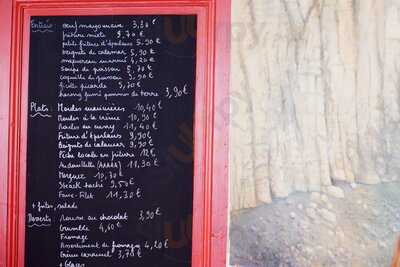 Entrées : oeuf mayonnaise 3,30 €
friture mixte 5,70 €
petite friture d'éperlans 5,90 €
beignets de calamar 5,90 €
maquereau mariné 4,20 €
Soupe de poisson 5,70 €
coquille de poisson 5,90 €
frisée picarde 5,70 €
hareng fumé pomme de terre 3,90 €
Plats : Moules marinières 10,40 €
Moules à la crème 10,90 €
Moules au curry 11,40 €
Friture d'éperlans 9,90 €
Beignets de calamar 9,90 €
Pêche locale en friture 12 €
Andouillette (AAAAA) 11,30 €
Merguez 10,30 €
Steack haché 9,50 €
Faux-Filet 11,30 €
+ frites, salade
Desserts : Mousse au chocolat 3,90 €
Crumble 4,60 €
Fromage
Assortiment de fromages 4,20 €
Crème caramel 3,70 €
+ glaces